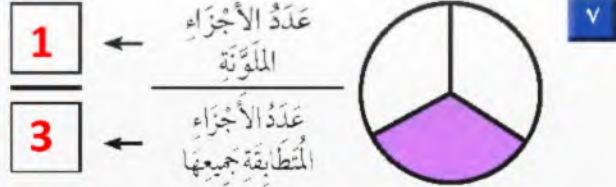 ٧
عَدَدُ الأَجْزَاءِ
المُلَوَّنَةِ
1
عَدَدُ الأَجْزَاءِ
المُتَطَابِقَةِ جَمِيعِهَا
3